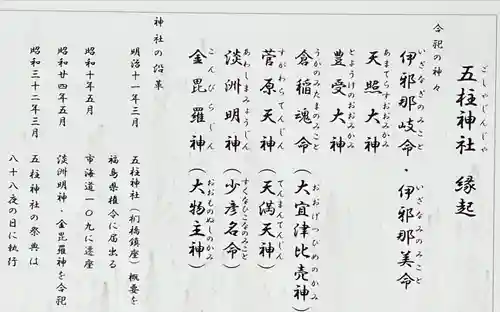 五柱神社 縁起
ごしゃじんじゃ
合祀の神々
伊邪那岐命・伊邪那美命
いざなぎのみこと いざなみのみこと
天照大神
あまてらすおおみかみ
豊受大神
とようけのおおみかみ
倉稲魂命(大宜津比売神)
うかのみたまのみこと おおげつひめのかみ
菅原天神(天満天神)
すがわらてんじん てんまんてんじん
淡洲明神(少彦名命)
あわしまみょうじん すくなびこなのみこと
金毘羅神(大物主神)
こんぴらじん おおものぬしのかみ
神社の沿革
明治十一年三月 五柱神社(柳橋鎮座)概要を
福島県権令に届出る
昭和十年五月 市海道一〇九に遷座
昭和廿四年五月 淡洲明神・金毘羅神を合祀
昭和三十二年三月 五柱神社の祭典は
八十八夜の日に執行